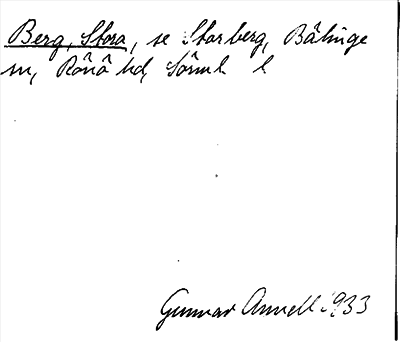 Berg, Stora, se Storberg, Bälinge
sn, Rönö hd, Sörml. l
Gunnar Annell 1933